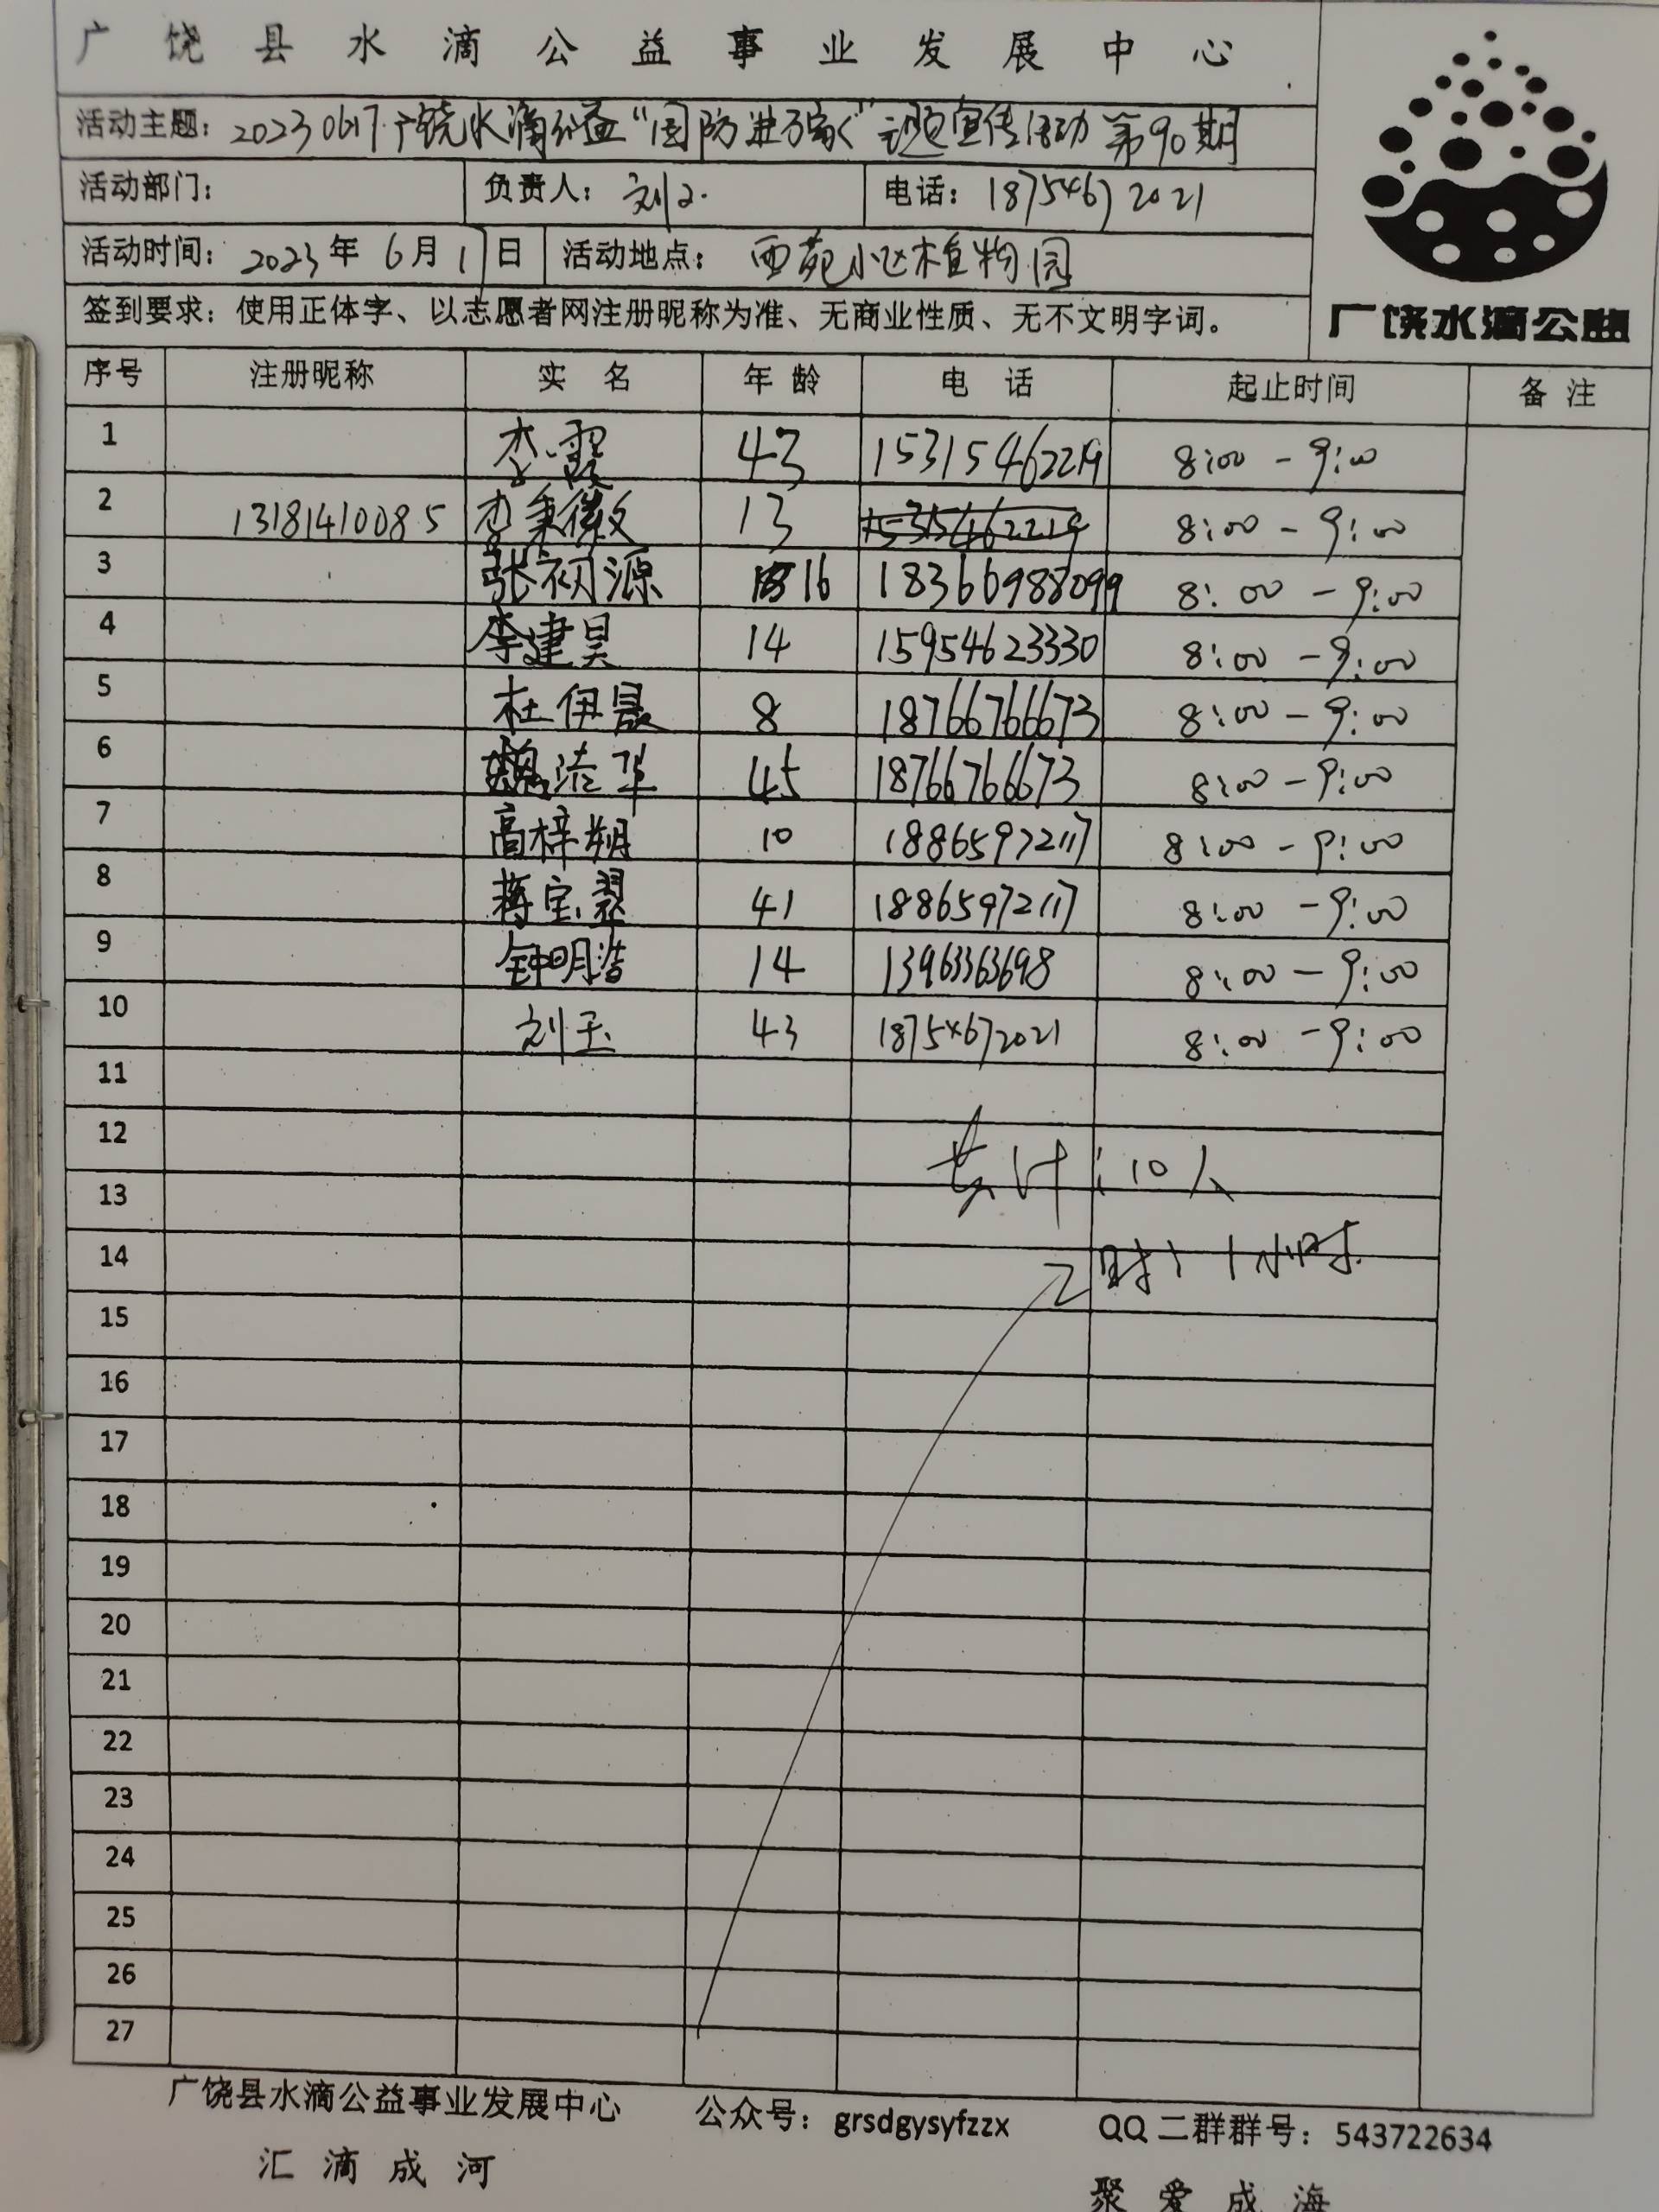 广饶县水滴公益事业发展中心
活动主题：20230617广饶水滴公益“国防进万家”主题宣传活动第90期
活动部门： 负责人：刘玉 电话：18754672021
活动时间：2023年6月17日 活动地点：西苑小区植物园
签到要求：使用正体字、以志愿者网注册昵称为准、无商业性质、无不文明字词。
广饶水滴公益
序号 注册昵称 实名 年龄 电话 起止时间 备注
1 李霞 43 15315462219 8:00-9:00
2 13181410085 李秉徽 13 15315462219 8:00-9:00
3 张初源 16 18366988099 8:00-9:00
4 李建昊 14 15954623330 8:00-9:00
5 杜伊晟 8 18766766673 8:00-9:00
6 魏 华 45 18766766673 8:00-9:00
7 高梓朔 10 18865972117 8:00-9:00
8 蒋宝翠 41 18865972117 8:00-9:00
9 钟明浩 14 13963363698 8:00-9:00
10 刘玉 43 18754672021 8:00-9:00
11
12 共计：10人
13
14 时：1小时
15
16
17
18
19
20
21
22
23
24
25
26
27
广饶县水滴公益事业发展中心 公众号：grsdgysyfzzx QQ二群群号：543722634
汇滴成河 聚爱成海